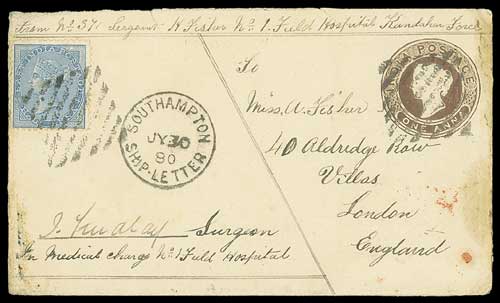 From No 37 Sergeant H Fisher No 1. Field Hospital Kandahar Force
INDIA POSTAGE
ONE ANNA
To
Miss. A. Fisher
40 Aldridge Row
Villas
London
England
SOUTHAMPTON
JY 30
80
SHIP-LETTER
Surgeon
In Medical charge No 1 Field Hospital